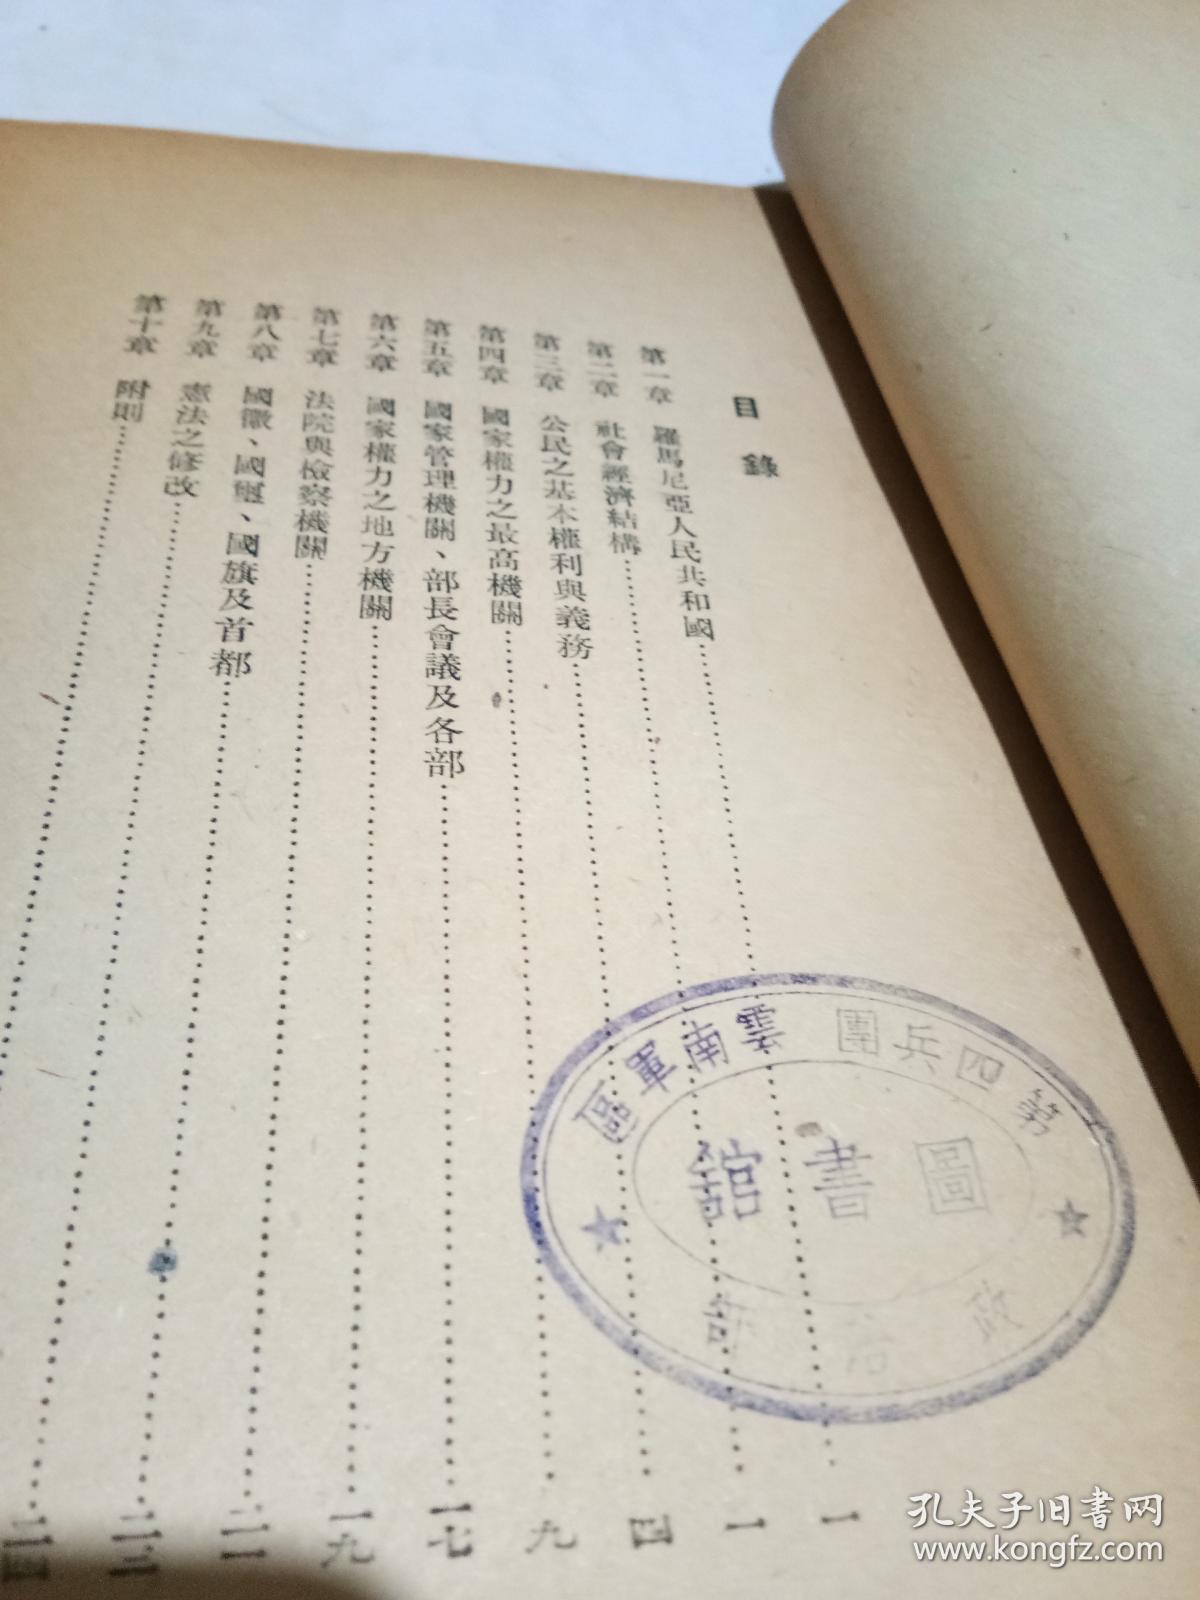 目錄
第一章 羅馬尼亞人民共和國……一
第二章 社會經濟結構……一
第三章 公民之基本權利與義務……四
第四章 國家權力之最高機關……九
第五章 國家管理機關、部長會議及各部……一七
第六章 國家權力之地方機關……一九
第七章 法院與檢察機關……二一
第八章 國徽、國璽、國旗及首都……二三
第九章 憲法之修改……二四
第十章 附則……
第四兵團 雲南軍區
圖書館
政治部
孔夫子旧书网
www.kongfz.com